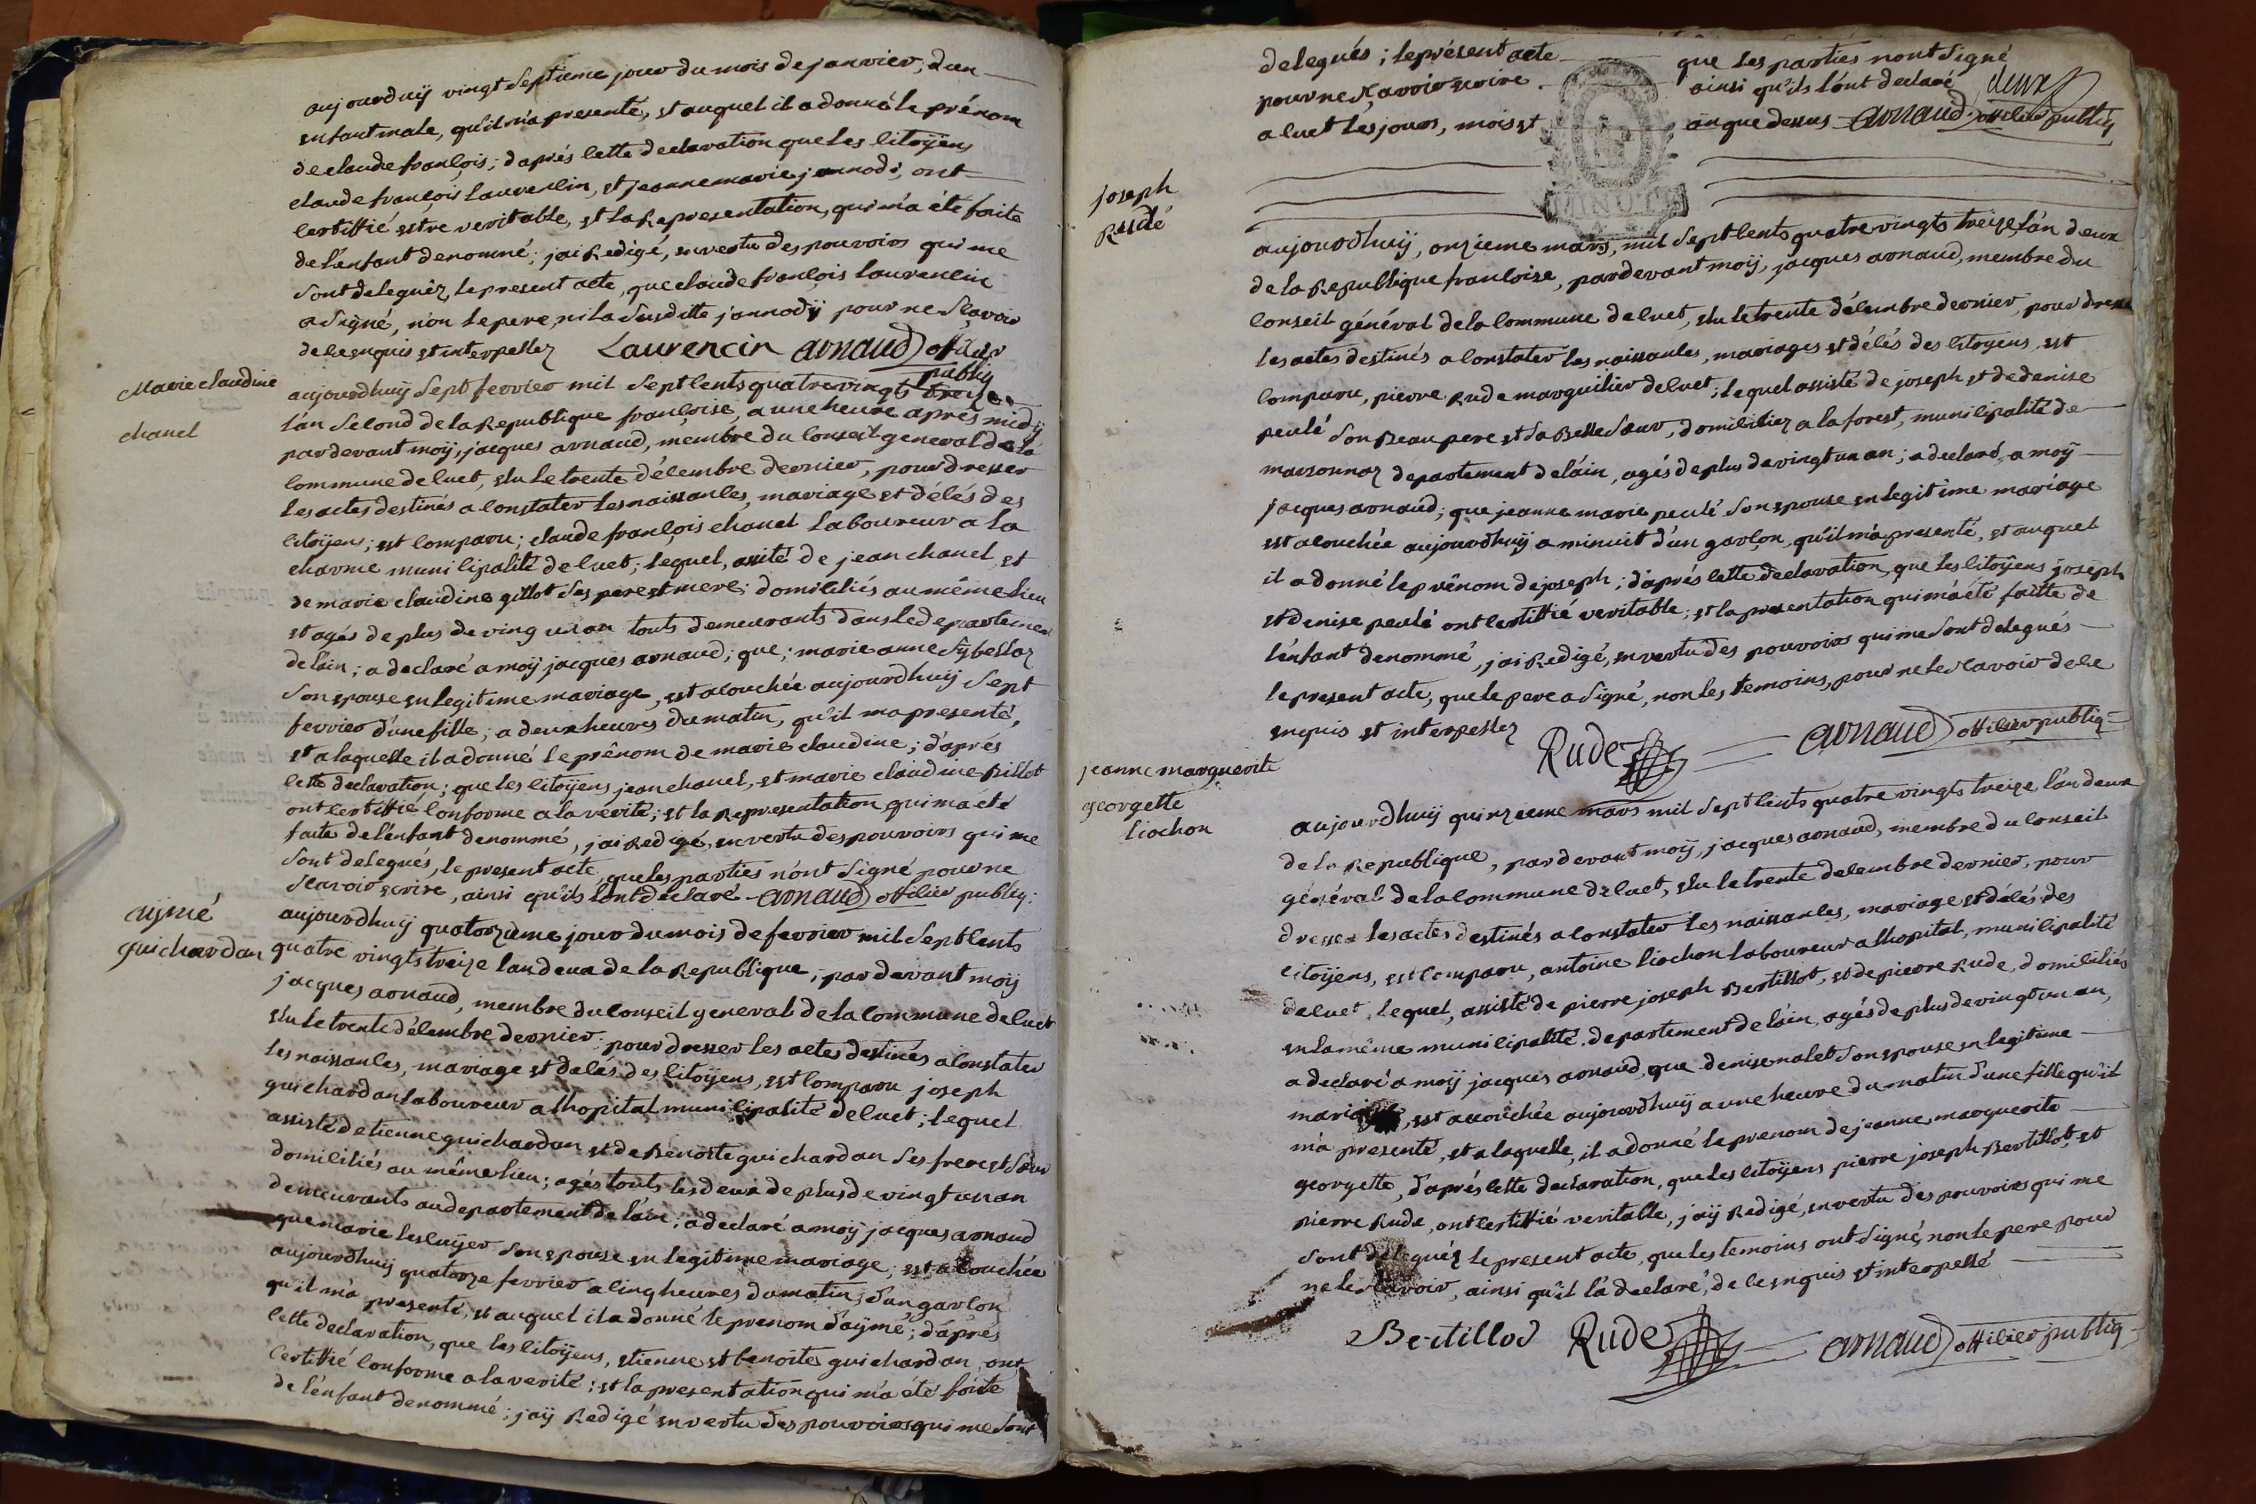 aujourdhuij vingt septieme jour du mois de janvier, d'un
enfant male, qu'il m'a presenté, et auquel il a donné le prénom
de claude françois; d'aprés cette declaration que les citoÿens
claude françois Laurencin, et jeanne marie jannodi, ont
certiffié estre veritable, et la Representation, qui m'a été faite
de l'enfant denommé; jai Redigé, en vertu des pouvoirs qui me
sont deleguéz, le present acte, que claude françois laurencin
a signé, non le pere, ni la susditte jannodÿ pour ne sçavoir
de ce enquis et interpellez Laurencin arnaud officier
public
Marie claudine
chanel
aujourdhuij sept fevrier mil sept cents quatre vingt treize
l'an second de la Republique françoise, a une heure aprés midÿ
par devant moÿ, jacques arnaud, membre du conseil general de la
commune de cuet, élu le trente décembre dernier, pour dresser
les actes destinés a constater les naissances, mariage et décés des
citoÿens; est comparu; claude françois chanel laboureur a la
charme municipalité de cuet; lequel, assité de jean chanel et
de marie claudine gillot ses pere et mere; domiciliés au même lieu
et agés de plus de ving un an touts demeurants dans le departement
de l'ain; a declaré a moÿ jacques arnaud; que; marie anne sÿbellaz
son epouse en legitime mariage, est acouchée aujourdhuij sept
fevrier d'une fille; a deux heures du matin, qu'il ma presenté,
et a laquelle il a donné le prénom de marie claudine; d'aprés
cette declaration; que les citoÿens jean chanel, et marie claudine Billot
ont certiffié conforme a la verité; et la Representation qui ma été
faite de l'enfant denommé, jai Redigé, en vertu des pouvoirs qui me
sont delegués, le present acte, que les parties n'ont signé pour ne
scavoir ecrire, ainsi qu'ils l'ont declaré arnaud officier public
aÿmé
guichardan
aujourdhuij quatorzieme jour du mois de fevrier mil sept cents
quatre vingts treize l'an deux de la Republique, par devant moÿ
jacques arnaud, membre du conseil general de la commune de cuet
élu le trente décembre dernier; pour dresser les actes destinés a constater
les naissances, mariage et décés des citoÿens, est comparu joseph
guichardan laboureur a lhopital municipalité de cuet; lequel
assisté detienne guichardan et de Benoite guichardan ses frere et sœur
domiciliés au même lieu; agés touts les deux de plus de vingt un an
demeurants au departement de l'ain; a declaré a moÿ jacques arnaud
que marie lescuÿer son epouse en legitime mariage; est acouchée
aujourdhuij quatorze fevrier a cinq heures du matin, d'un garçon
qu'il m'a presenté, et auquel il a donné le prenom d'aÿmé; d'aprés
cette declaration, que les citoÿens, etienne et benoite guichardan, ont
certiffié conforme a la verité; et la presentation qui m'a été faite
de l'enfant denommé; jaÿ Redigé en vertu des pouvoirs qui me sont
delegués; le présent acte que les parties nont signé
pour ne sçavoir ecrire ainsi qu'ils l'ont declaré
a cuet les jours, mois et an que dessus arnaud officier public
deux
MINUTE
joseph
Rudé
aujourdhuij, onzieme mars, mil sept cents quatre vingts treize l'an deux
de la Republique françoise, par devant moÿ, jacques arnaud, membre du
conseil général de la commune de cuet, élu le trente décembre dernier, pour dresser
les actes destinés a constater les naissances, mariages et décés des citoyens, est
comparu, pierre Rude marguilier de cuet; lequel assisté de joseph et de denise
peulé son Beau pere et sa Belle sœur, domiciliez a la forest, municipalité de
marsonnaz departement de l'ain, agés de plus de vingt un an; a declaré, a moÿ
jacques arnaud; que jeanne marie peulé son epouse en legitime mariage
est acouchée aujourdhuij a minuit d'un garçon, qu'il m'a presenté, et auquel
il a donné le prénom de joseph; d'aprés cette declaration, que les citoÿens joseph
et denise peulé ont certiffié veritable; et la presentation qui m'a été faitte de
l'enfant denommé, jai Redigé, en vertu des pouvoirs qui me sont delegués
le present acte, que le pere a signé, non les temoins, pour ne le scavoir de ce
enquis et interpellez Rude arnaud officier public
jeanne marguerite
georgette
liochon
aujourdhuij quinzieme mars mil sept cents quatre vingts treize l'an deux
de la Republique, par devant moÿ, jacques arnaud, membre du conseil
général de la commune de cuet, élu le trente decembre dernier, pour
dresser les actes destinés a constater les naissances, mariage et décés des
citoÿens, est comparu, antoine liochon laboureur a lhopital, municipalité
de cuet, lequel, assisté de pierre joseph Bertillot, et de pierre Rude, domiciliés
en la même municipalité, departement de l'ain, agés de plus de vingt un an,
a declaré a moÿ jacques arnaud, que denise nalet son epouse en legitime
mariage, est acouchée aujourdhuij a une heure du matin d'une fille qu'il
m'a presenté, et a laquelle, il a donné le prenom de jeanne marguerite
georgette, d'aprés cette declaration, que les citoÿens pierre joseph Bertillot, et
pierre Rude, ont certiffié veritable, jaÿ Redigé, en vertu des pouvoirs qui me
sont deleguéz le present acte, que les temoins ont signé, non le pere pour
ne le scavoir, ainsi qu'il l'a declaré, de ce enquis et interpellé
Bertillod Rude arnaud officier public